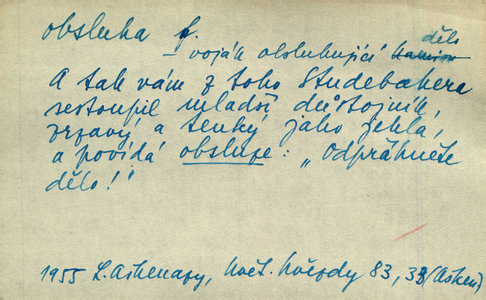 obsluha f.
voják obsluhující kanion dělo
A tak vám z toho Studebakera
sestoupil mladší důstojník,
zrzavý a tenký jako jehla,
a povídá obsluze: „Odpřáhněte
dělo!"
1955 L. Aškenazy, Květ. hvězdy 83, 33 (Ašken)